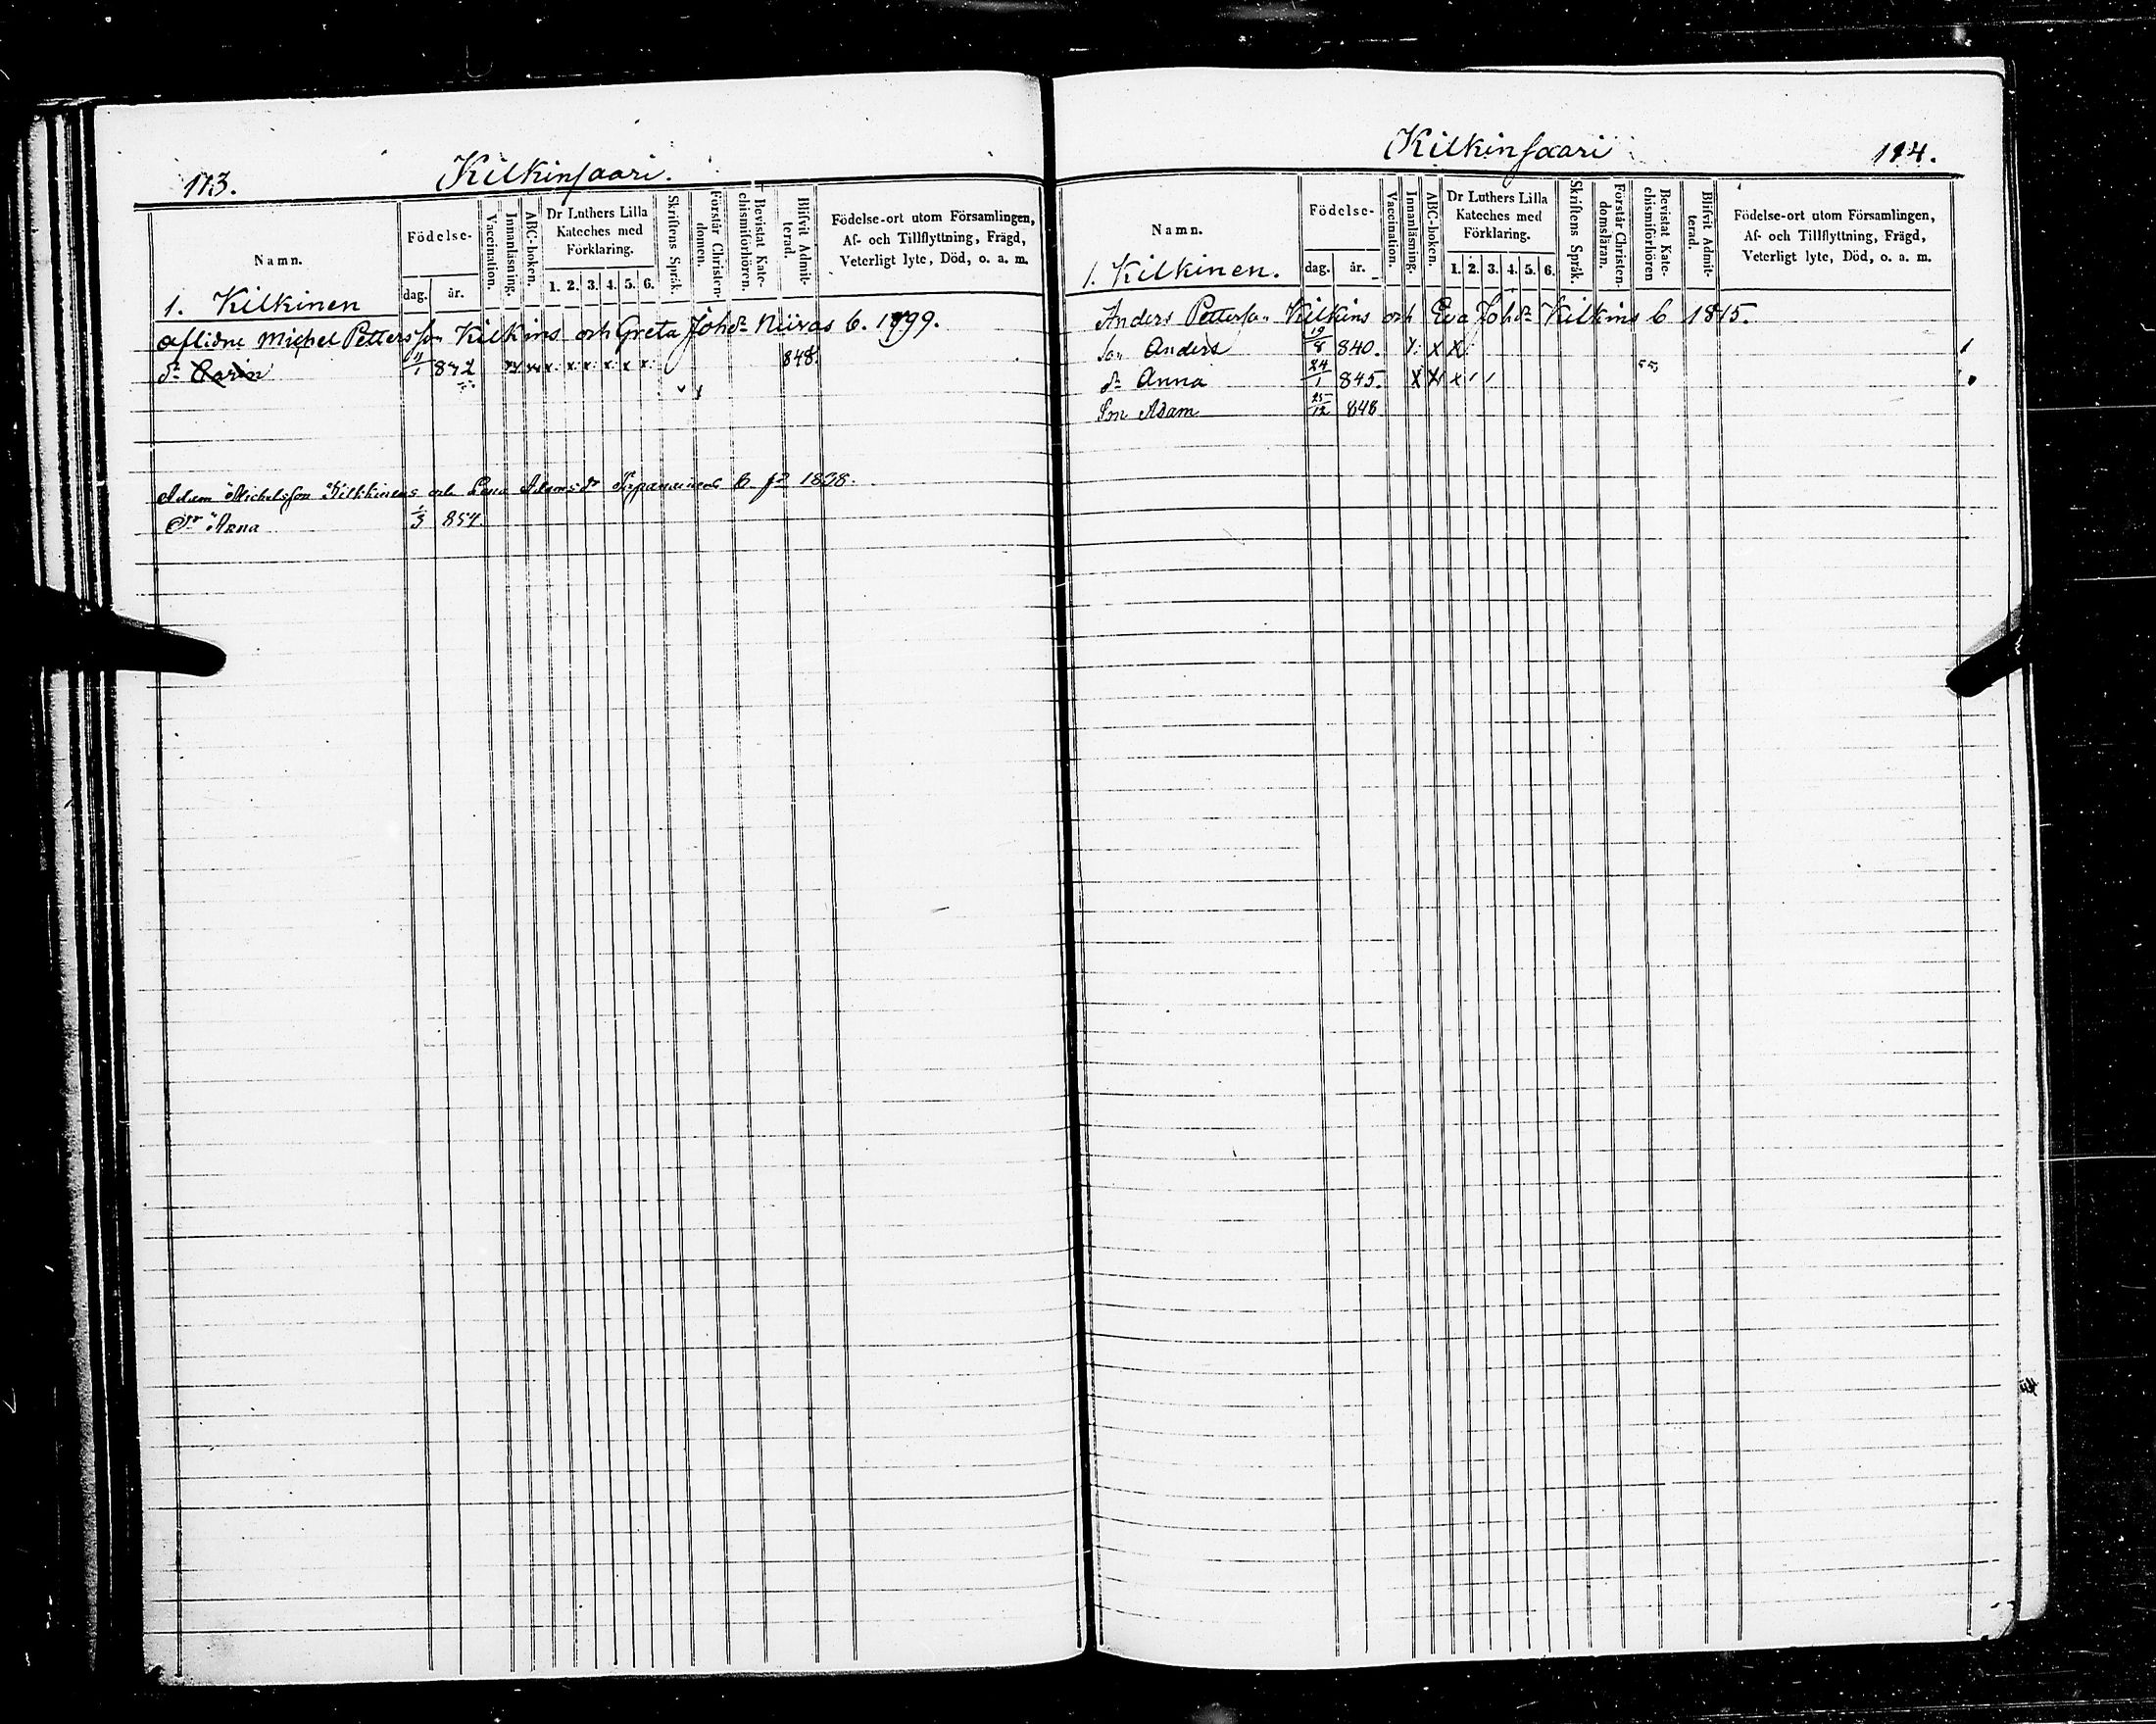 173.
Kilkinsaari.
Namn.
Födelse-
dag. år.
Vaccination.
Innanläsning.
ABC-boken.
Dr Luthers Lilla Kateches med Förklaring.
1. 2. 3. 4. 5. 6.
Skriftens Språk.
Förstår Christen-domen.
Bevistat Kate-chismiförhören.
Blifvit Admit-terad.
Födelse-ort utom Församlingen,
Af- och Tillflyttning, Frägd,
Veterligt lyte, Död, o. a. m.
1. Kilkinen
aflidne Michel Pettersson Kilkins och Greta Johdr Niiras b. 1799.
dr Carin 11/1 842 x x x x x x 848.
Adam Michelsson Kilkkinens och Lena Adamsdr b. fd 1828.
Dr Anna 1/3 854.
Kilkinsaari
174.
Namn.
Födelse-
dag. år.
Vaccination.
Innanläsning.
ABC-boken.
Dr Luthers Lilla Kateches med Förklaring.
1. 2. 3. 4. 5. 6.
Skriftens Språk.
Förstår Christen-domsläran.
Bevistat Kate-chismiförhören
Blifvit Admit-terad.
Födelse-ort utom Församlingen,
Af- och Tillflyttning, Frägd,
Veterligt lyte, Död, o. a. m.
1. Kilkinen.
Anders Petterson Kilkins och Eva Johdr Kilkins b 1815.
Son Anders 19/8 840. x x x
dr Anna 24/1 845. x x x
Son Adam 25/12 848